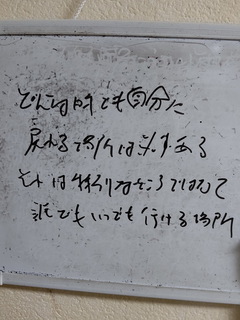 どんな時でも自分に
戻れる場所は必ずある
それは特別なところではなくて
誰でもいつでも行ける場所